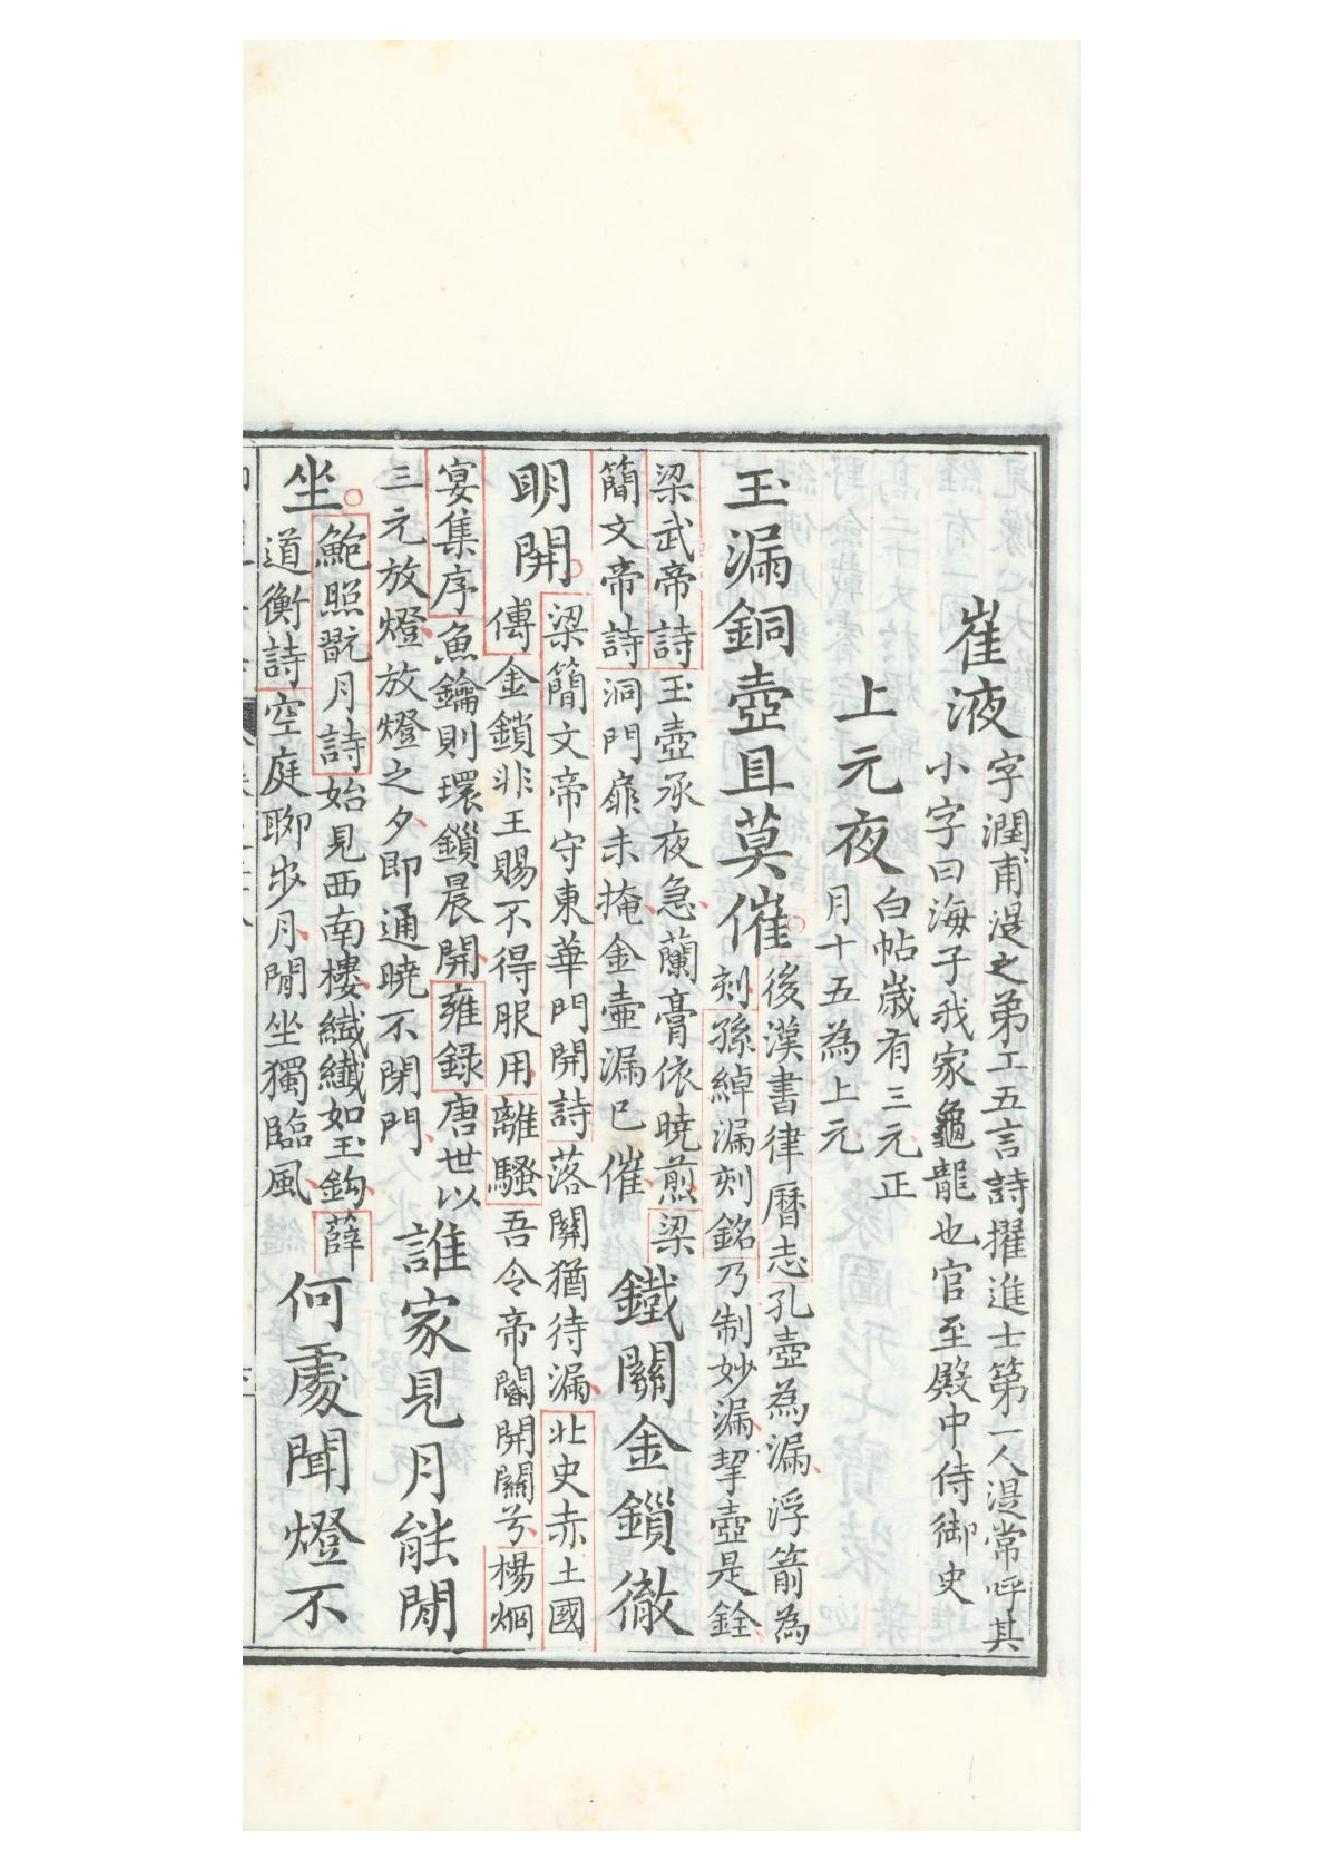 崔液
字潤甫湜之弟工五言詩擢進士第一人湜常呼其
小字曰海子我家龜龍也官至殿中侍御史
上元夜
白帖歲有三元正
月十五為上元
玉漏銅壺且莫催
後漢書律曆志孔壺為漏浮箭為
刻孫綽漏刻銘乃制妙漏挈壺是銓
梁武帝詩玉壺承夜急蘭膏依曉煎梁
簡文帝詩洞門扉未掩金壺漏已催
鐵關金鎖徹
明開
梁簡文帝守東華門開詩落關猶待漏北史赤土國
傳金鎖非王賜不得服用離騷吾令帝閽開關兮楊炯
宴集序魚鑰則環鎖晨開雍錄唐世以
三元放燈放燈之夕即通曉不閉門
誰家見月能閒
坐
鮑照翫月詩始見西南樓纖纖如玉鈎薛
道衡詩空庭聊步月閒坐獨臨風
何處聞燈不